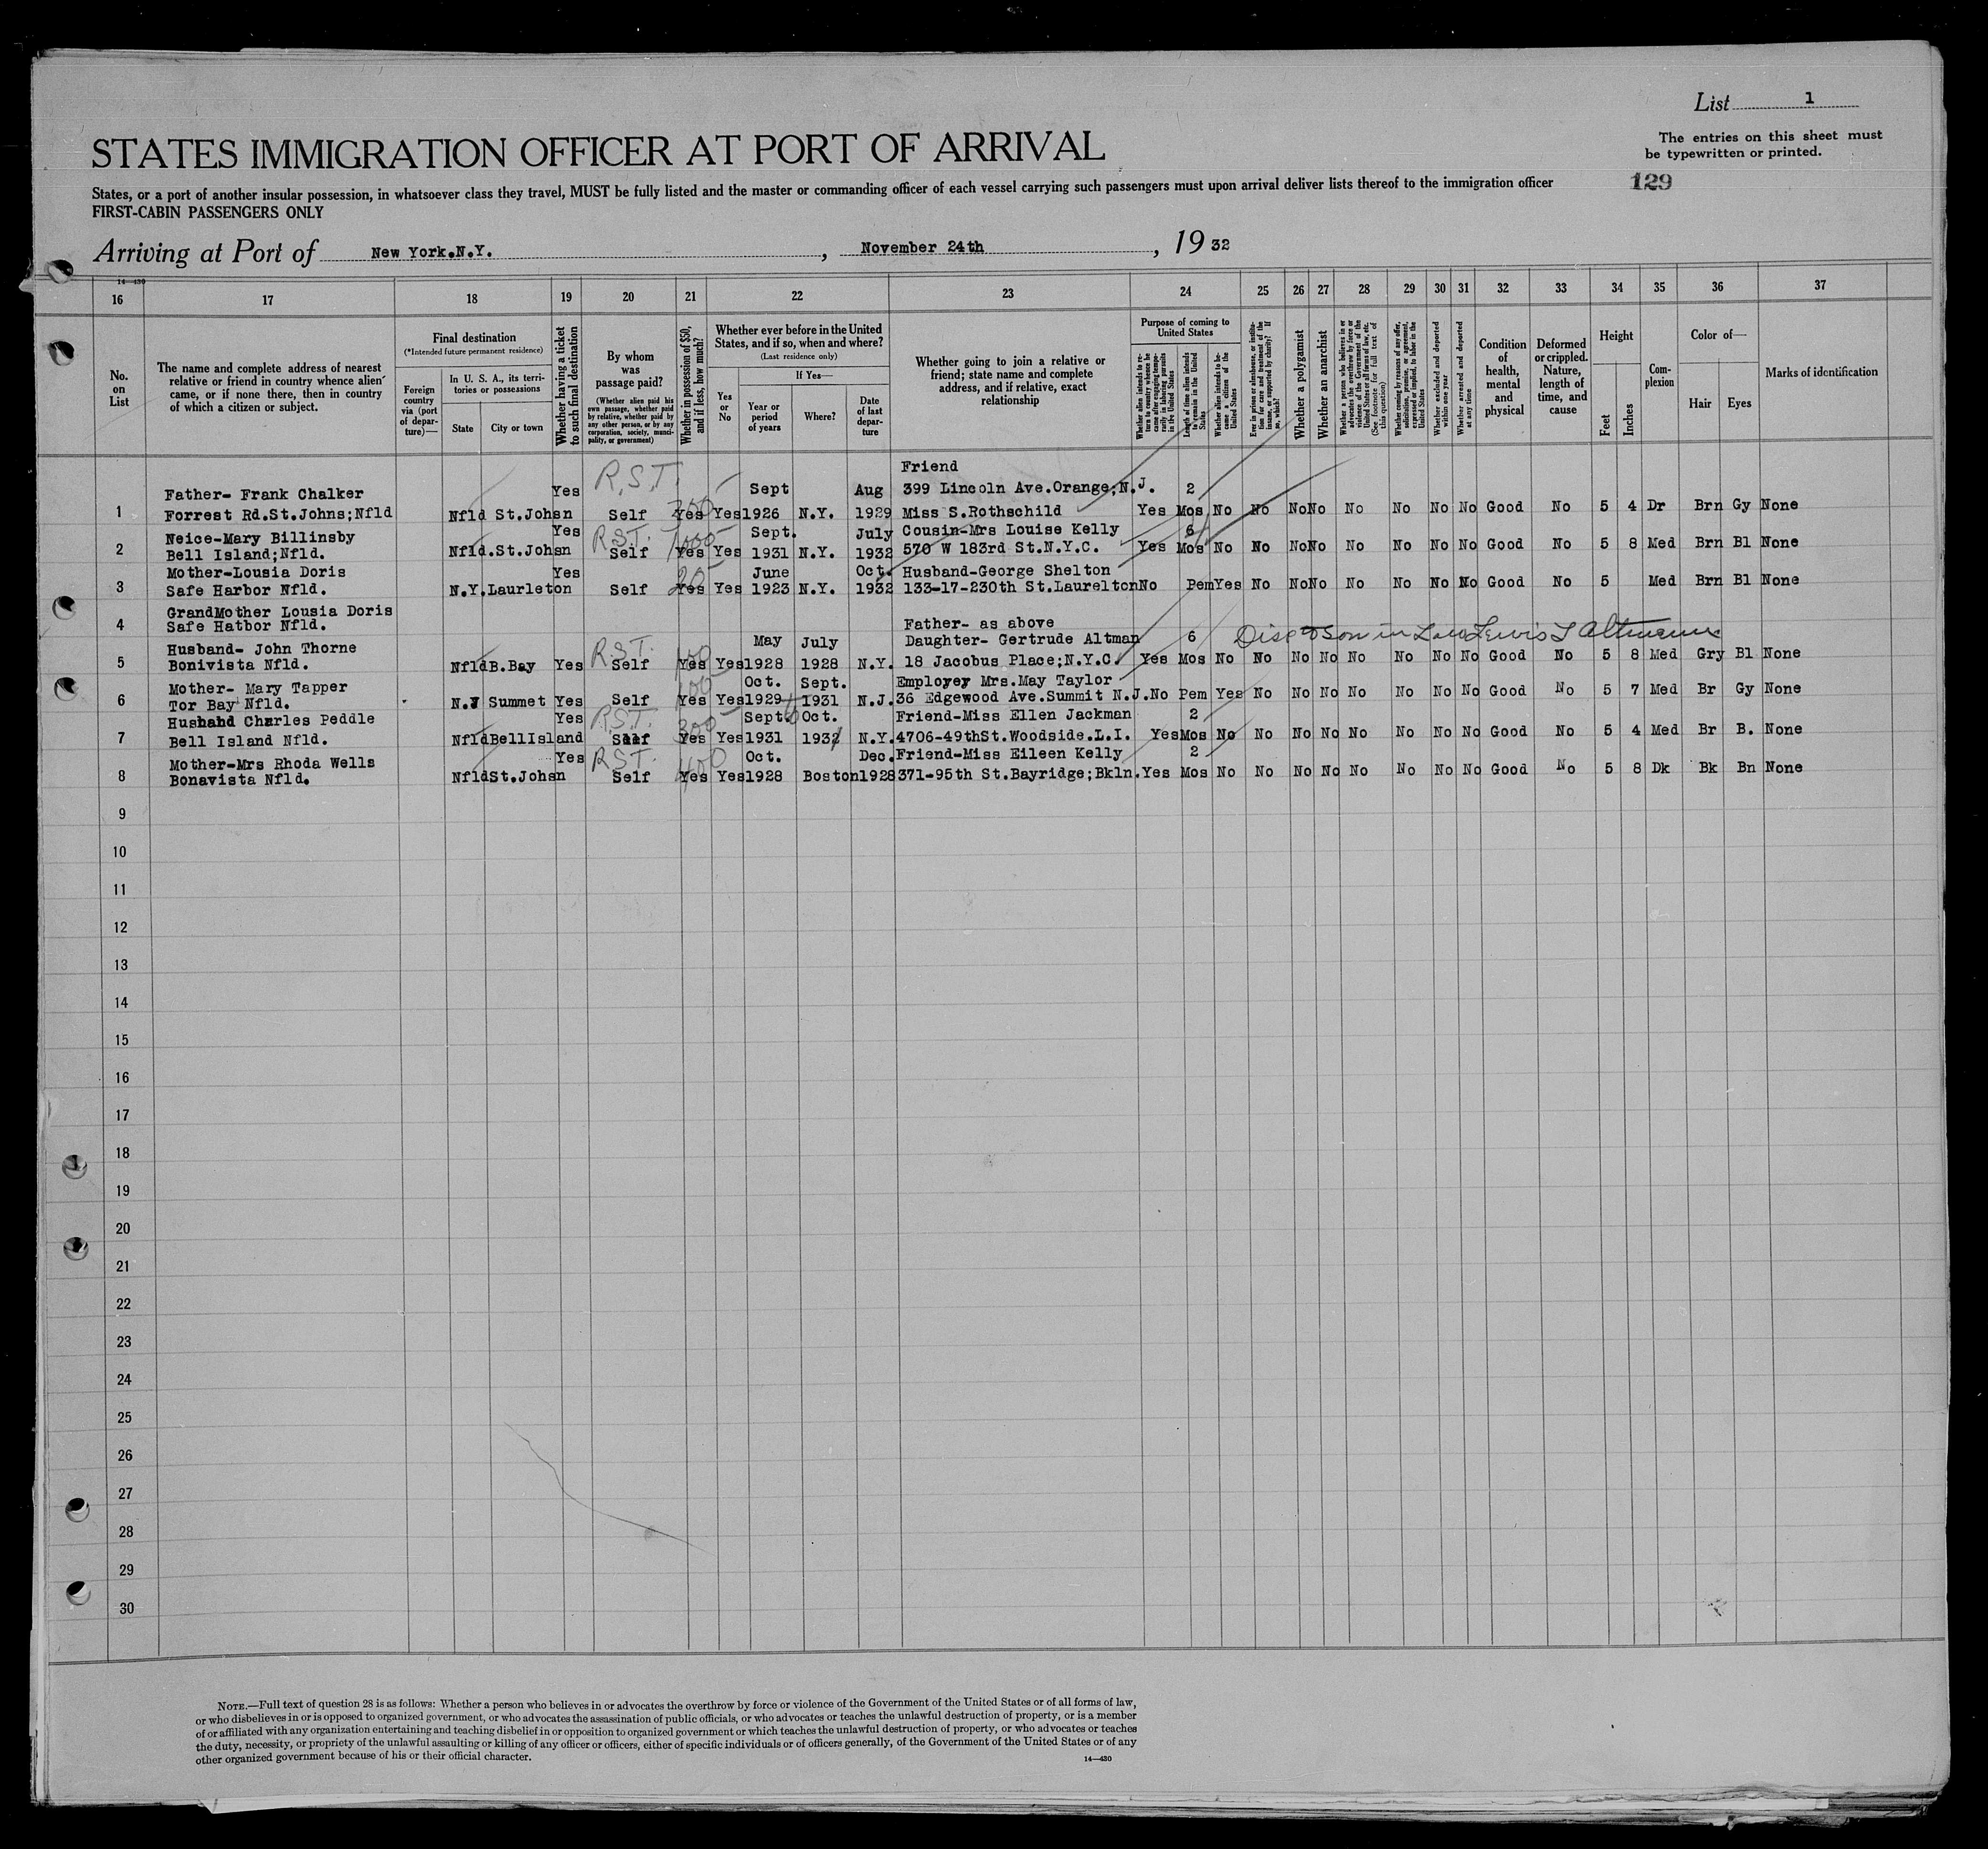 List 1
The entries on this sheet must
be typewritten or printed.
STATES IMMIGRATION OFFICER AT PORT OF ARRIVAL
129
States, or a port of another insular possession, in whatsoever class they travel, MUST be fully listed and the master or commanding officer of each vessel carrying such passengers must upon arrival deliver lists thereof to the immigration officer
FIRST-CABIN PASSENGERS ONLY
Arriving at Port of New York.N.Y. , November 24th , 19 32
14—430
16 17 18 19 20 21 22 23 24 25 26 27 28 29 30 31 32 33 34 35 36 37
No.
on
List
The name and complete address of nearest
relative or friend in country whence alien
came, or if none there, then in country
of which a citizen or subject.
Final destination
(*Intended future permanent residence)
Foreign
country
via (port
of depar-
ture)—
In U. S. A., its terri-
tories or possessions
State City or town
Whether having a ticket
to such final destination
By whom
was
passage paid?
(Whether alien paid his
own passage, whether paid
by relative, whether paid by
any other person, or by any
corporation, society, munici-
pality, or government)
Whether in possession of $50,
and if less, how much?
Whether ever before in the United
States, and if so, when and where?
(Last residence only)
Yes
or
No
If Yes—
Year or
period
of years
Where?
Date
of last
depar-
ture
Whether going to join a relative or
friend; state name and complete
address, and if relative, exact
relationship
Purpose of coming to
United States
Whether alien intends to re-
turn to country whence he
came after engaging tempo-
rarily in laboring pursuits
in the United States
Length of time alien intends
to remain in the United
States
Whether alien intends to be-
come a citizen of the
United States
Ever in prison or almshouse, or institu-
tion for care and treatment of the
insane, or supported by charity? If
so, which?
Whether a polygamist
Whether an anarchist
Whether a person who believes in or
advocates the overthrow by force or
violence of the Government of the
United States or all forms of law, etc.
(See footnote for full text of
this question)
Whether coming by reason of any offer,
solicitation, promise, or agreement,
expressed or implied, to labor in the
United States
Whether excluded and deported
within one year
Whether arrested and deported
at any time
Condition
of
health,
mental
and
physical
Deformed
or crippled.
Nature,
length of
time, and
cause
Height
Feet Inches
Com-
plexion
Color of—
Hair Eyes
Marks of identification
Friend
Father- Frank Chalker Yes R.S.T. Sept Aug 399 Lincoln Ave.Orange;N.J. 2
1 Forrest Rd.St.Johns;Nfld Nfld St.Johsn Self 300 Yes Yes 1926 N.Y. 1929 Miss S.Rothschild Yes Mos No No No No No No No No Good No 5 4 Dr Brn Gy None
Neice-Mary Billinsby Yes R.S.T. 1000 Sept. July Cousin-Mrs Louise Kelly 6
2 Bell Island;Nfld. Nfld.St.Johsn Self Yes Yes 1931 N.Y. 1932 570 W 183rd St.N.Y.C. Yes Mos No No No No No No No No Good No 5 8 Med Brn Bl None
Mother-Lousia Doris Yes 20 June Oct. Husband-George Shelton
3 Safe Harbor Nfld. N.Y.Laurleton Self Yes Yes 1923 N.Y. 1932 133-17-230th St.Laurelton No Pem Yes No No No No No No No Good No 5 Med Brn Bl None
GrandMother Lousia Doris
4 Safe Hatbor Nfld. Father- as above
Disc to Son in Law Lewis I Altmann
Husband- John Thorne R.S.T. 100 May July Daughter- Gertrude Altman 6
5 Bonivista Nfld. Nfld B.Bay Yes Self Yes Yes 1928 1928 N.Y. 18 Jacobus Place;N.Y.C. Yes Mos No No No No No No No No Good No 5 8 Med Gry Bl None
Mother- Mary Tapper 100 Oct. Sept. Employey Mrs.May Taylor
6 Tor Bay Nfld. N.J Summet Yes Self Yes Yes 1929 1931 N.J. 36 Edgewood Ave.Summit N.J. No Pem Yes No No No No No No No Good No 5 7 Med Br Gy None
Husband Charles Peddle Yes R.S.T. 300 Sept. Oct. Friend-Miss Ellen Jackman 2
7 Bell Island Nfld. Nfld BellIsland Self Yes Yes 1931 1932 N.Y. 4706-49thSt.Woodside.L.I. Yes Mos No No No No No No No No Good No 5 4 Med Br B. None
Mother-Mrs Rhoda Wells Yes R.S.T. 400 Oct. Dec. Friend-Miss Eileen Kelly 2
8 Bonavista Nfld. Nfld St.Johsn Self Yes Yes 1928 Boston 1928 371-95th St.Bayridge;Bkln. Yes Mos No No No No No No No No Good No 5 8 Dk Bk Bn None
9
10
11
12
13
14
15
16
17
18
19
20
21
22
23
24
25
26
27
28
29
30
NOTE.—Full text of question 28 is as follows: Whether a person who believes in or advocates the overthrow by force or violence of the Government of the United States or of all forms of law,
or who disbelieves in or is opposed to organized government, or who advocates the assassination of public officials, or who advocates or teaches the unlawful destruction of property, or is a member
of or affiliated with any organization entertaining and teaching disbelief in or opposition to organized government or which teaches the unlawful destruction of property, or who advocates or teaches
the duty, necessity, or propriety of the unlawful assaulting or killing of any officer or officers, either of specific individuals or of officers generally, of the Government of the United States or of any
other organized government because of his or their official character.
14—430